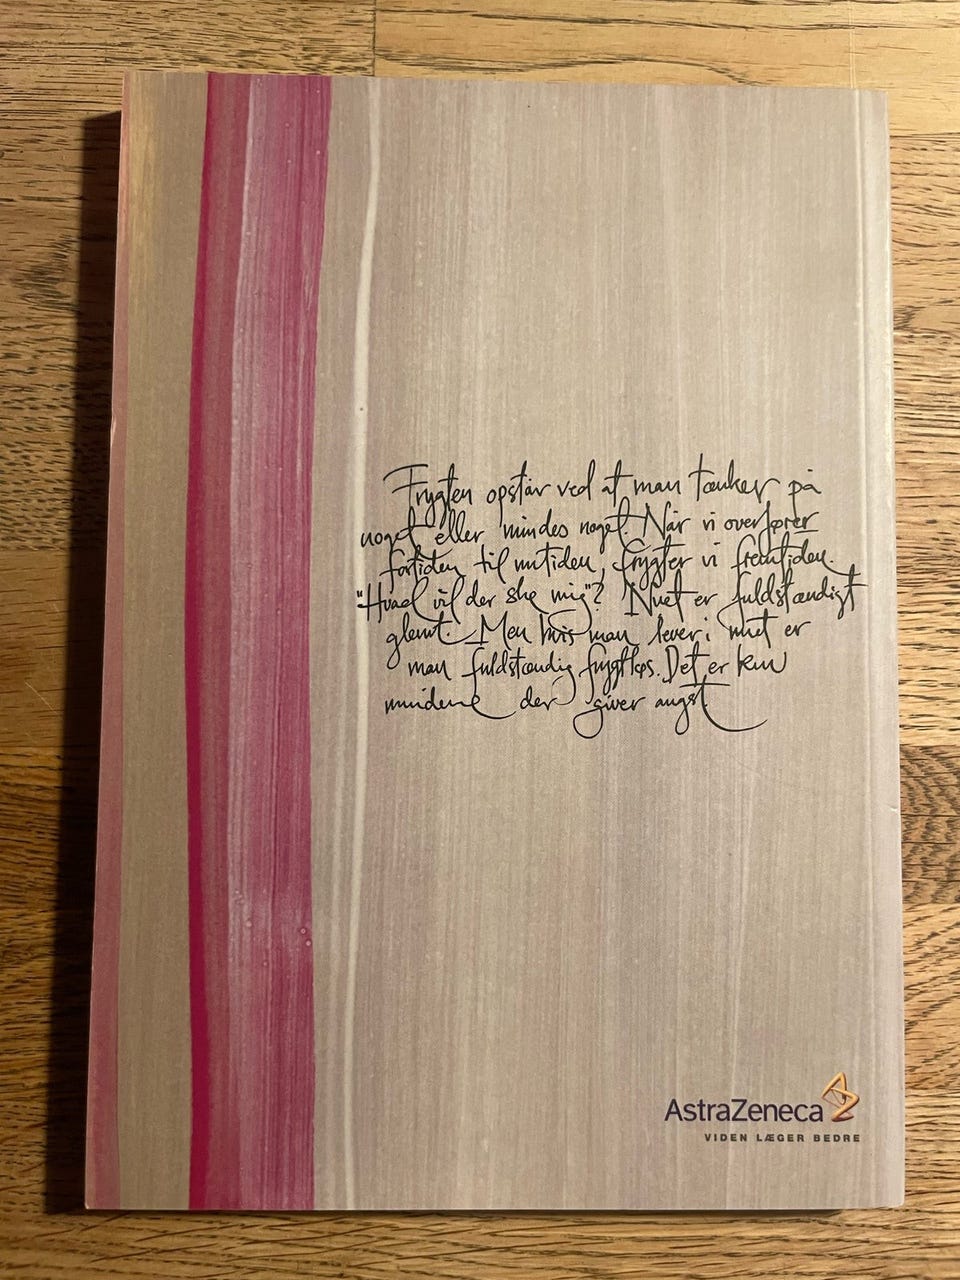 Frygten opstår ved at man tænker på
noget eller mindes noget. Når vi overfører
fortiden til nutiden, frygter vi fremtiden.
"Hvad vil der ske mig"? Nuet er fuldstændigt
glemt. Men hvis man lever i nuet er
man fuldstændig frygtløs. Det er kun
minderne der giver angst
AstraZeneca
VIDEN LÆGER BEDRE